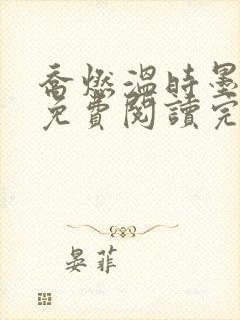 喬燃溫時墨
免費閱讀完
晏菲